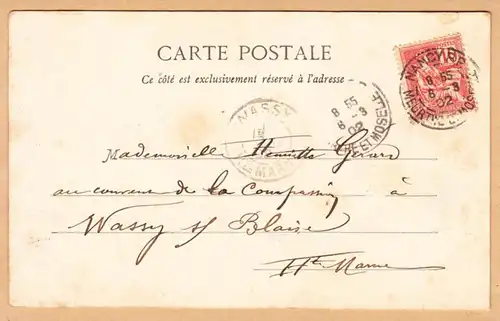 CARTE POSTALE
Ce côté est exclusivement réservé à l'adresse
NANCY
8 55
6 - 3
02
MEURTHE ET MOSELLE
8 55
6 - 3
02
ET MOSELLE
WASSY
16
Mademoiselle Henriette Gérard
au couvent de la Compassion à
Wassy s/ Blaise
Hte Marne